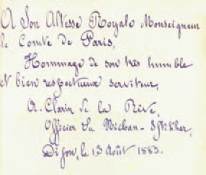 A Son Altesse Royale Monseigneur
le Comte de Paris,
Hommage de son très humble
et bien respectueux serviteur,
A. Clavin de la Rive,
Officier du Nichan-Iftikhar,
Dijon, le 13 Août 1883.